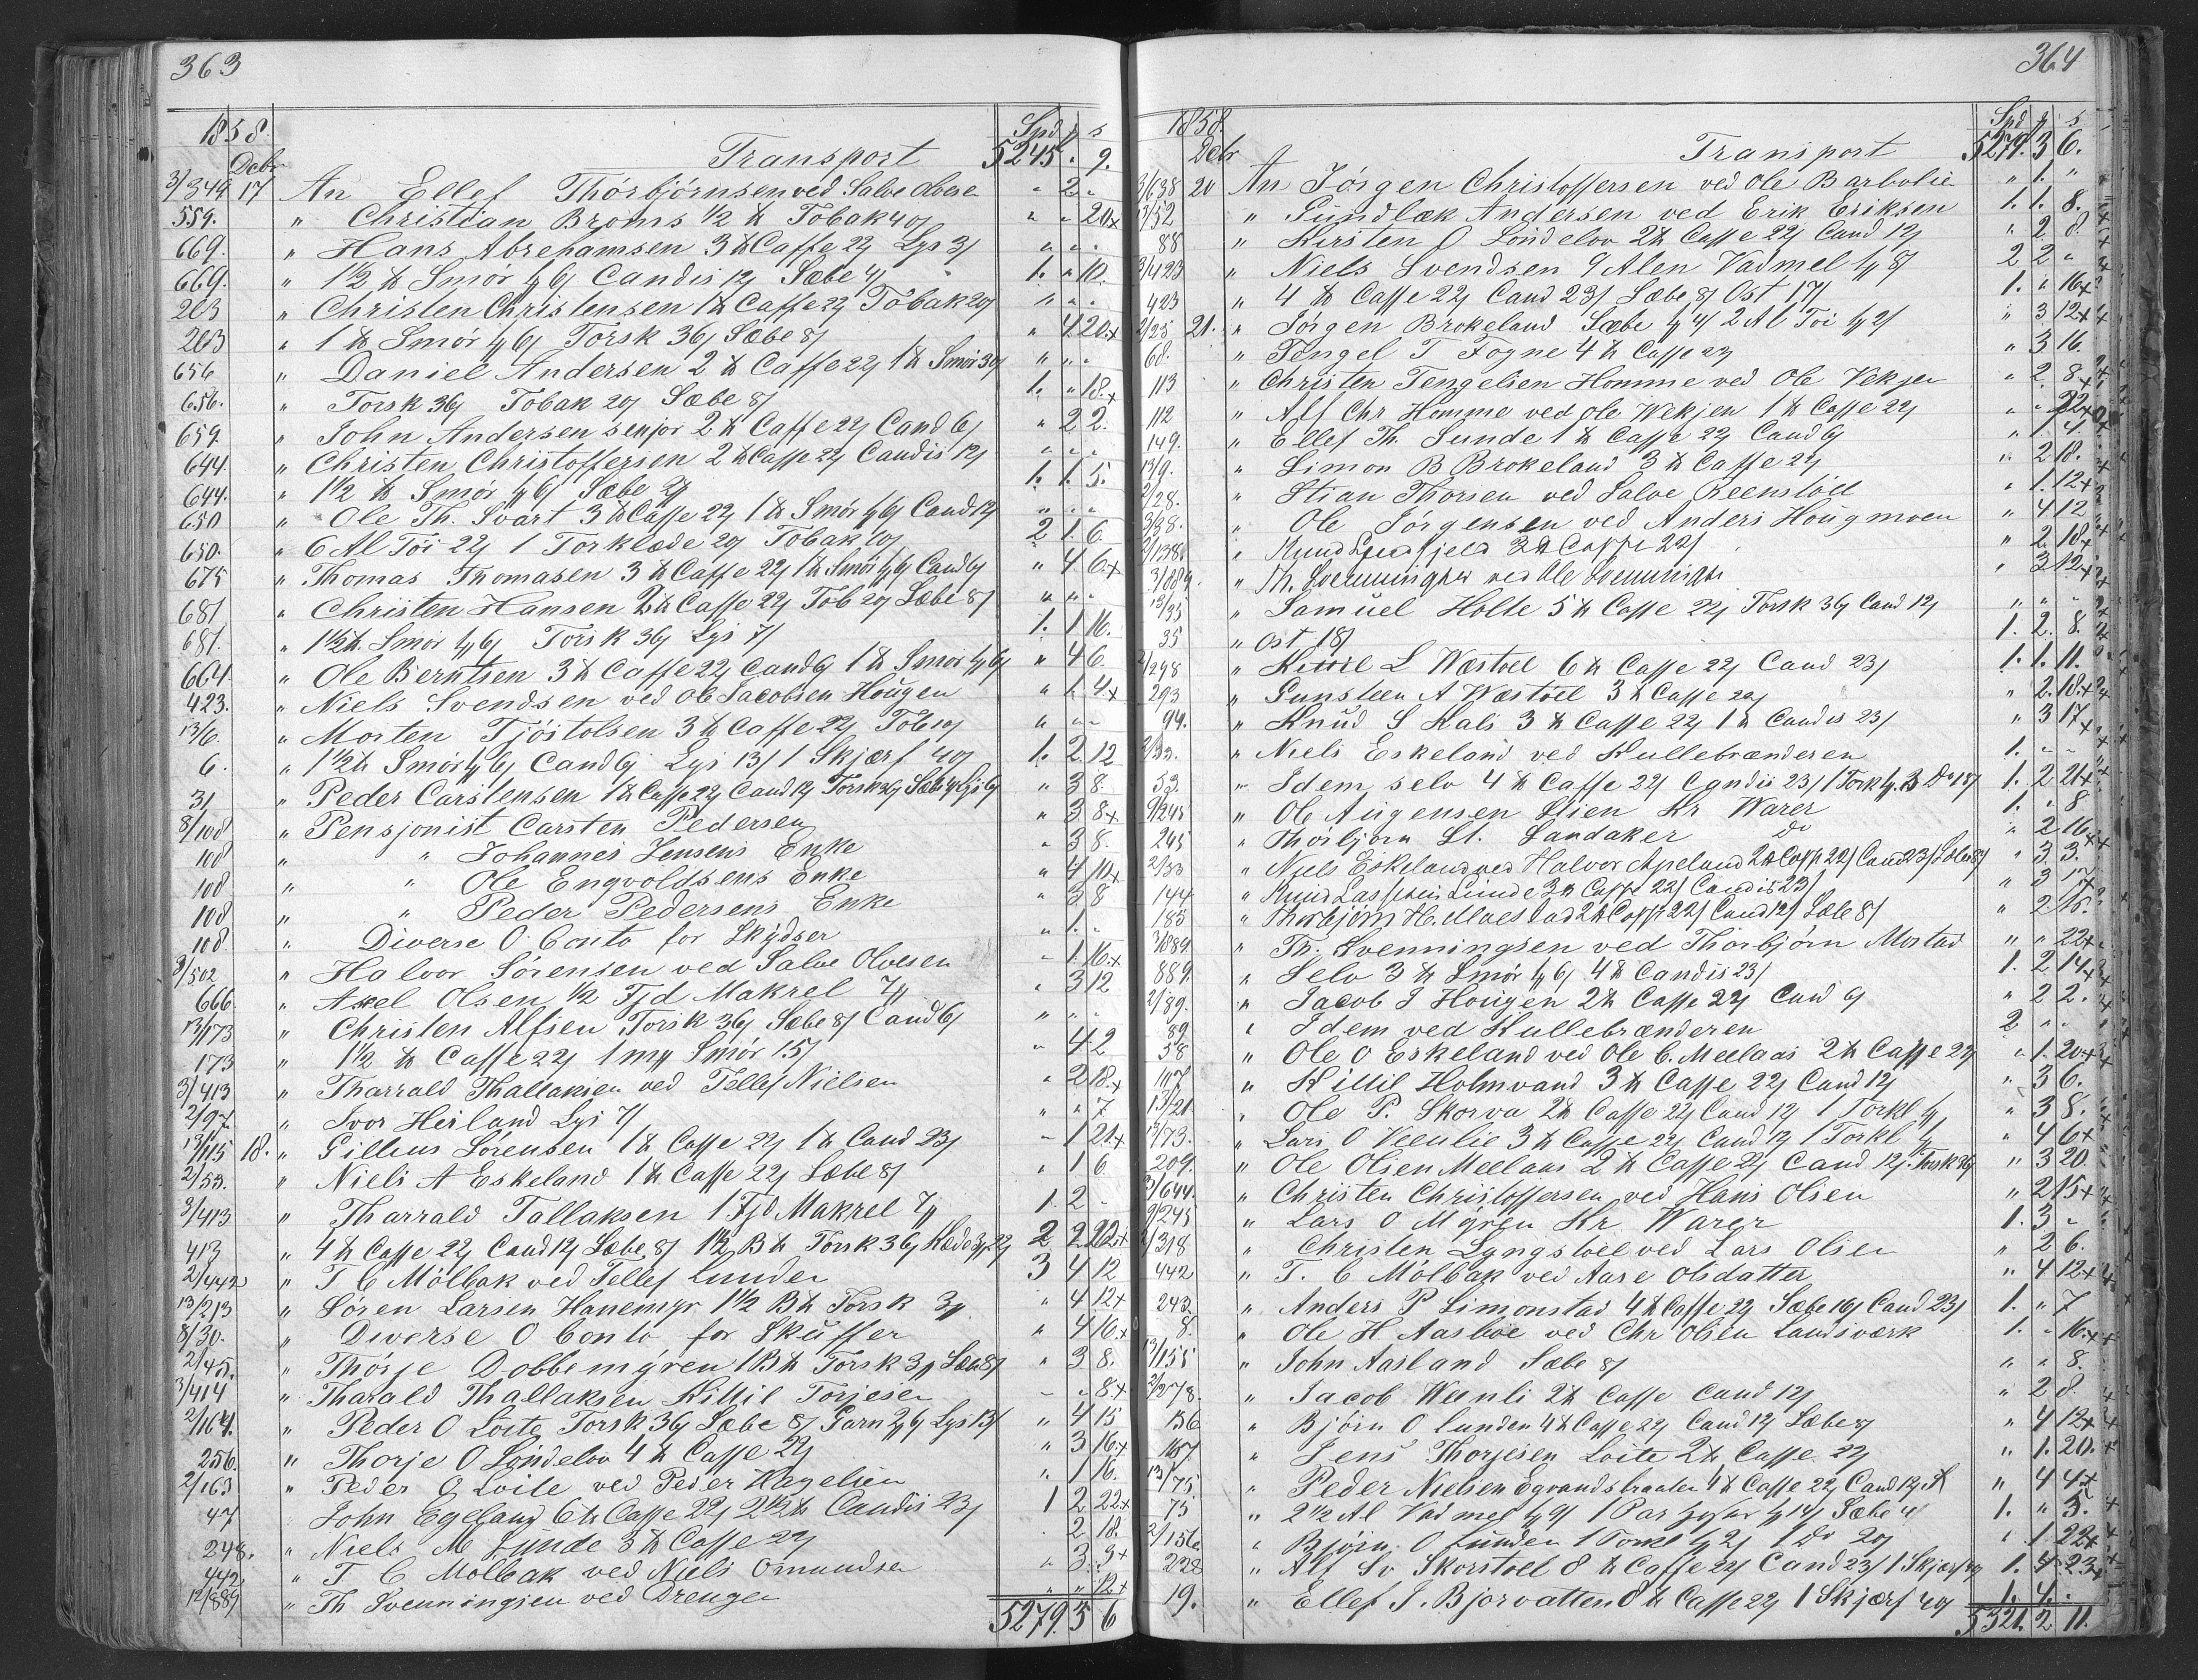 363
1858.
Spd s
Debr
Transport 5245 „ 9.
3/349 17 An Ellef Thórbjórnsen ved Salve Olvesen „ 2 „
559. „ Christian Broms 1/2 ℔ Tobak 40/ „ „ 20x
669. „ Hans Abrehamsen 3 ℔ Caffe 22/ Lys 3/ „ „ „
669. „ 1 1/2 ℔ Smór Candis 12/ Sæbe 4/ 1. „ 10.
203 „ Christen Christensen 1 ℔ Caffe 22/ Tobak 20/ „ „ „
203 „ 1 ℔ Smór Torsk 36/ Sæbe 8/ „ 4 20x
656 „ Daniel Andersen 2 ℔ Caffe 22/ 1 ℔ Smór 30/ „ „ „
656. „ Torsk 36/ Tobak 20/ Sæbe 8/ 1. „ 18.x
659. „ John Andersen senjor 2 ℔ Caffe 22/ Cand 6/ „ 2 2.
644. „ Christen Christoffersen 2 ℔ Caffe 22/ Candis 12/ „ „ „
644. „ 1 1/2 ℔ Smór Sæbe 1. 1. 5.
650 „ Ole Th. Svart 3 ℔ Caffe 22/ 1 ℔ Smór Cand 12/ „ „ „
650. „ 6 Al Tói 22/ 1 Torklæde 20/ Tobak 10/ 2 1. 6.
675 „ Thomas Thomasen 3 ℔ Caffe 22/ 1 ℔ Smór Cand 6/ „ 4 6.x
681 „ Christen Hansen 2 ℔ Caffe 22/ Tob 20/ Sæbe 8/ „ „ „
681. „ 1 1/2 ℔. Smór Torsk 36/ Lys 7/ 1. 1 16.
664. „ Ole Berntsen 3 ℔ Caffe 22/ Cand 6/ 1 ℔ Smór „ 4 6.
423. „ Niels Svendsen ved Ole Jacobsen Hougen „ 1. 4x
13/6. „ Morten Tjóstolsen 3 ℔ Caffe 22/ Tob 10/ „ „ „
6. „ 1 1/2 ℔ Smór Cand 6/ Lys 13/ 1 Skjærf 40/ 1. 2 12
31. „ Peder Carstensen 1 ℔ Caffe 22/ Cand 12/ Torsk 36/ Sæbe 4/ Lys 6/ „ 3 8.
8/108 „ Pensjonist Carsten Pedersen „ 3 8x
108 „ „ Johannes Jensens Enke „ 3 8.
108 „ „ Ole Engvoldsens Enke „ 4 10x
108 „ „ Peder Pedersens Enke „ 3 8
108. „ Diverse O Conto for Skydser „ 1. „
3/502 „ Halvor Sórensen ved Salve Olvesen „ 1 16.x
666. „ Axel Olsen 1/2 Fjd Makrel „ 3 12
13/173 „ Christen Alfsen Torsk 36/ Sæbe 8/ Cand 6/ „ „ „
173 „ 1 1/2 ℔ Caffe 22/ Smór 15/ „ 4 2
3/413 „ Tharrald Thallaksen ved Tellef Nielsen „ 2 18.x
2/97. „ Ivor Heiland Lys 7/ „ „ 7
13/115 18. „ Gillius Sórensen 1 ℔ Caffe 22/ 1 ℔ Cand 23/ „ 1 21x
2/53. „ Niels A Eskeland 1 ℔ Caffe 22/ Sæbe 8/ „ 1 6
3/413 „ Tharrald Tallaksen 1 Fjd Makrel 1. 2 „
413 „ 4 ℔ Caffe 22/ Cand 12/ Sæbe 8/ 1 1/2 B℔ Torsk 36/ 2 2 22x
2/442 „ T C Mólbak ved Tellef Lunden 3 4 12
13/213 „ Sóren Larsen Hanemyr 1 1/2 B℔ Torsk „ 4 12x
8/30. „ Diverse O Conto for Skuffer „ 4 16.x
2/45. „ Thórje Dobbemyren 1 B℔ Torsk Sæbe 8/ „ 3 8.
3/414 „ Tharald Thallaksen Kittil Torjesen „ „ 8x
2/164. „ Peder O Loite Torsk 36/ Sæbe 8/ Garn Lys 13/ „ 4 15
256. „ Thorje O Lóndelov 4 ℔ Caffe 22/ „ 3 16.x
2/163 „ Peder O Loite ved Peder Hagelien „ 1 16.
47 John Egeland 6 ℔ Caffe 22/ 2 1/2 ℔ Candis 23/ 1 2 22x
248. „ Niels M Lunde 3 ℔ Caffe 22/ „ 2 18.
442 „ T C Mólbak ved Niels Omundsen „ 3. 3x
12/889 „ Th Svenningsen ved Drengen „ „ 12x
5279. 3 6
364
1858.
Spd s
Debr
Transport 5279. 3 6.
3/638 20 An Jórgen Christoffersen ved Ole Barbolie „ 1. „
13/52 „ Gundlæk Andersen ved Erik Eriksen 1. 1. 8.
88 „ Kirsten O Lóndelov 2 ℔ Caffe 22/ Cand 12/ „ 2 8.
3/423 „ Niels Svendsen 9 Alen Vadmel 2 2 „
423 „ 4 ℔ Caffe 22/ Cand 23/ Sæbe 8/ Ost 17/ 1. „ 16x
2/25 21. „ Jórgen Brokeland Sæbe 2 Al Tói „ 3 12x
68. „ Tengel T Fogne 4 ℔ Caffe 22/ „ 3 16.
113 „ Christen Tengelsen Homme ved Ole Vekjen „ 2 8.x
112 „ Alf Chr Homme ved Ole Wekjen 1 ℔ Caffe 22/ „ „ 22x
149. „ Ellef Th. Sunde 1 ℔ Caffe 22/ Cand 6/ „ 1 4.
13/9. „ Simon B Brokeland 3 ℔ Caffe 22/ „ 2 18.
2/28. „ Stian Thorsen ved Salve Reenstóel „ 1. 12x
3/38. „ Ole Jórgensen ved Anders Hougmoen „ 4 12
2/138. „ Knud 3 ℔ Caffe 22/ „ 2 18x
3/889. „ Th. Svenningsen ved Ole Svenningsen „ 3 12x
13/35 „ Samuel Holte 5 ℔ Caffe 22/ Torsk 36/ Cand 12/ „ „ „
35 „ Ost 18/ 1. 2. 8.
2/298 „ Kittil L Wæstoel 6 ℔ Caffe 22/ Cand 23/ 1. 1. 11.
293 „ Gunsteen A Wæstoel 3 ℔ Caffe 22/ „ 2. 18.x
94. „ Knud S Kals 3 ℔ Caffe 22/ 1 ℔ Candis 23/ „ 3 17x
2/53. „ Niels Eskeland ved Kullebrænderen 1. „ „
53. „ Idem selv 4 ℔ Caffe 22/ Candis 23/ 1 Tork Do 18/ 1. 2 21x
9/245 „ Ole Augensen Stien Kr Warer 1. „ 8
245 „ Thórbjórn St. Landaker Do „ 2 16x
2/53 „ Niels Eskeland ved Halvor Apeland 2 ℔ Caffe 22/ Cand 23/ Sæbe 8/ „ 3. 3.
144 „ Knud Lassesen Lunde 3 ℔ Caffe 22/ Candis 23/ „ 3 17
183 „ Thorbjórn H. Moestad 2 ℔ Caffe 22/ Cand 12/ Sæbe 8/ „ 2 16.
3/889. „ Th. Svenningsen ved Thórbjórn Mostad „ „ 22x
889. „ Selv 3 ℔ Smór 4 ℔ Candis 23/ 1. 2 14x
2/89. „ Jacob J Hougen 2 ℔ Caffe 22/ Cand 6/ „ 2 2.
89. „ Idem ved Kullebrænderen 2 „ „
58 „ Ole O Eskeland ved Ole C. Meelaas 2 ℔ Caffe 22/ „ 1. 20x
147 „ Kittil Holmvand 3 ℔ Caffe 22/ Cand 12/ „ 3 6.
13/21. „ Ole P. Skorva 2 ℔ Caffe 22/ Cand 12/ 1 Torkl „ 3 8.
13/73. „ Lars O Veenlie 3 ℔ Caffe 22/ Cand 12/ 1 Torkl „ 4 6x
209. „ Ole Olsen Meelaas 2 ℔ Caffe 22/ Cand 12/. Torsk 36/ „ 3 20.
3/644. „ Christen Christoffersen ved Hans Olsen „ 2 15x
9/245 „ Lars O Myren Kr Warer 1. 3 „
2/318 „ Christen Lyngstoel ved Lars Olsen „ 2 6.
442 „ T. C Mólbak ved Aase Olsdatter „ 4 12x
243. „ Anders P Simonstad 4 ℔ Caffe 22/ Sæbe 16/ Cand 23/ 1. „ 7
8. „ Ole H Aasbóe ved Chr Olsen Landsværk 1. „ 16.x
13/155 „ John Aasland Sæbe 8/ „ „ 8.
2/278. „ Jacob Weenli 2 ℔ Caffe Cand 12/ „ 2 8.
156 „ Bjórn O Lunden 4 ℔ Caffe 22/ Cand 12/ Sæbe 8/ „ 4 12x
167 „ Jens Thorjesen Loite 2 ℔ Caffe 22/ „ 1. 20.
13/75 „ Peder Nielsen Egvandsbraaten 4 ℔ Caffe 22/ Cand 12/ „ 4 4x
75 „ 2 1/2 Al Vadmel 1 Par Sæbe 4/ 1. „ 5.
2/156. „ Bjórn O Lunden 1 Torkl 1 Do 20/ „ 1 22x
228 „ Alf Sv Skorstoel 8 ℔ Caffe 22/ Cand 23/ 1 Skjærf 1. 4. 23x
19. „ Ellef J. Bjorvatten 8 ℔ Caffe 22/ 1 Skjærf 40/ 1. 4. .
5321. 2 11.